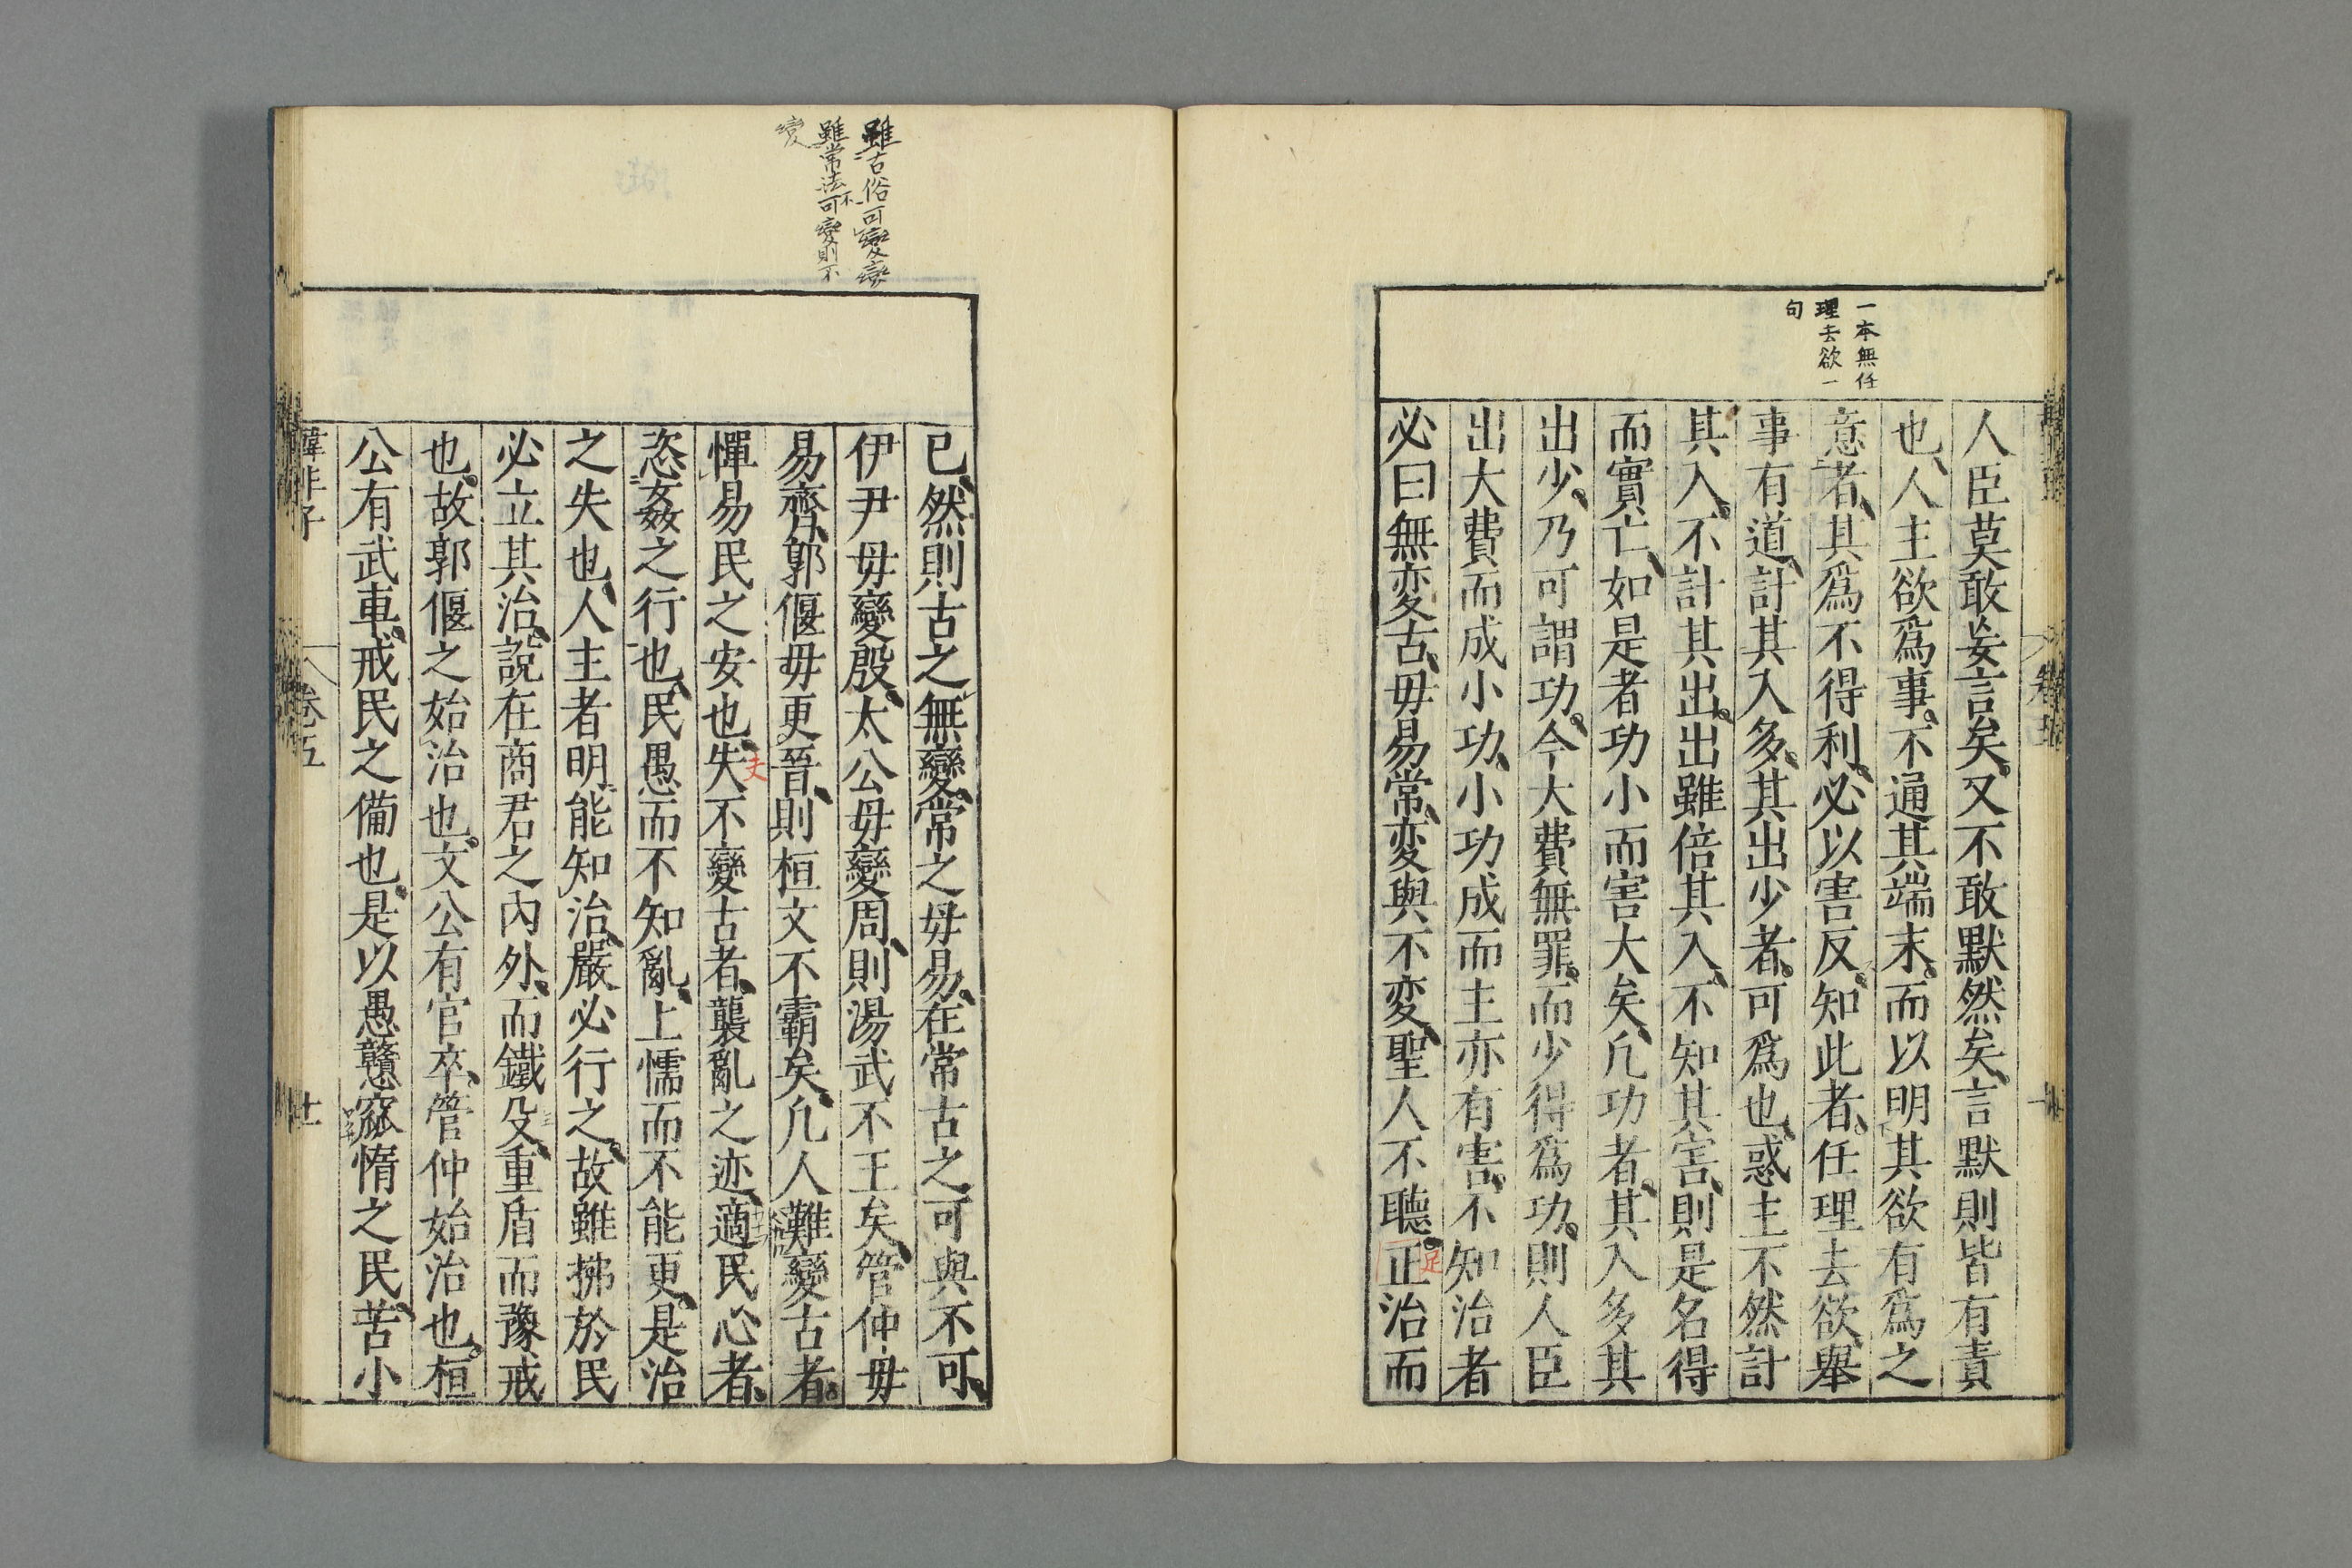 一本無任
理去欲一
句
人臣莫敢妄言矣又不敢默然矣言默則皆有責
也人主欲爲事不通其端末而以明其欲有爲之
意者其爲不得利必以害反知此者任理去欲舉
事有道計其入多其出少者可爲也惑主不然計
其入不計其出出雖倍其入不知其害則是名得
而實亡如是者功小而害大矣凡功者其入多其
出少乃可謂功今大費無罪而少得爲功則人臣
出大費而成小功小功成而主亦有害不知治者
必曰無変古毋易常変與不変聖人不聽正治而
足
雖古俗可變變
雖常法不可變則不
變
已然則古之無變常之毋易在常古之可與不可
伊尹毋變殷太公毋變周則湯武不王矣管仲毋
易齊郭偃毋更晉則桓文不霸矣凡人難變古者
憚易民之安也失不變古者襲亂之迹適民心者
夫
恣姦之行也民愚而不知亂上懦而不能更是治
之失也人主者明能知治嚴必行之故雖拂於民
必立其治說在商君之內外而鐵殳重盾而豫戒
也故郭偃之始治也文公有官卒管仲始治也桓
公有武車戒民之備也是以愚戇窳惰之民苦小
韓非子 卷五 十一